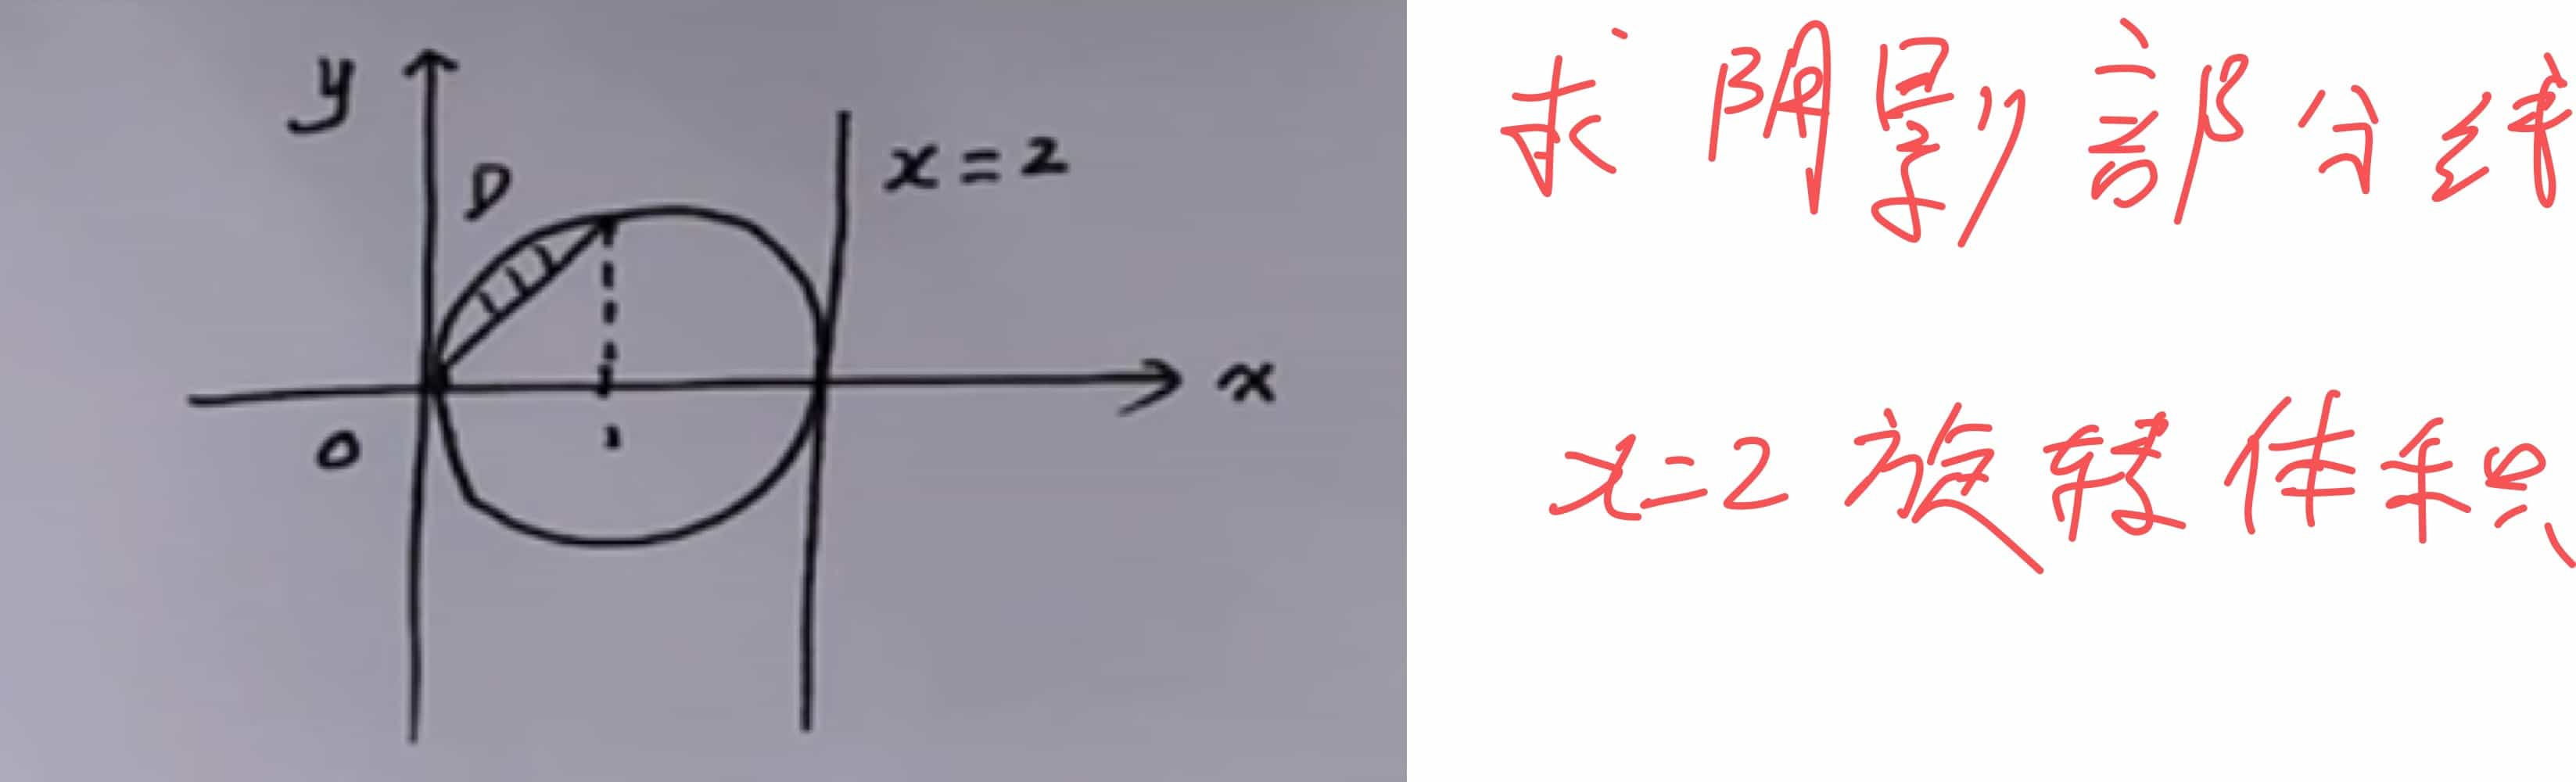 y
D
x=2
x
O
1
求阴影部分绕
x=2旋转体积